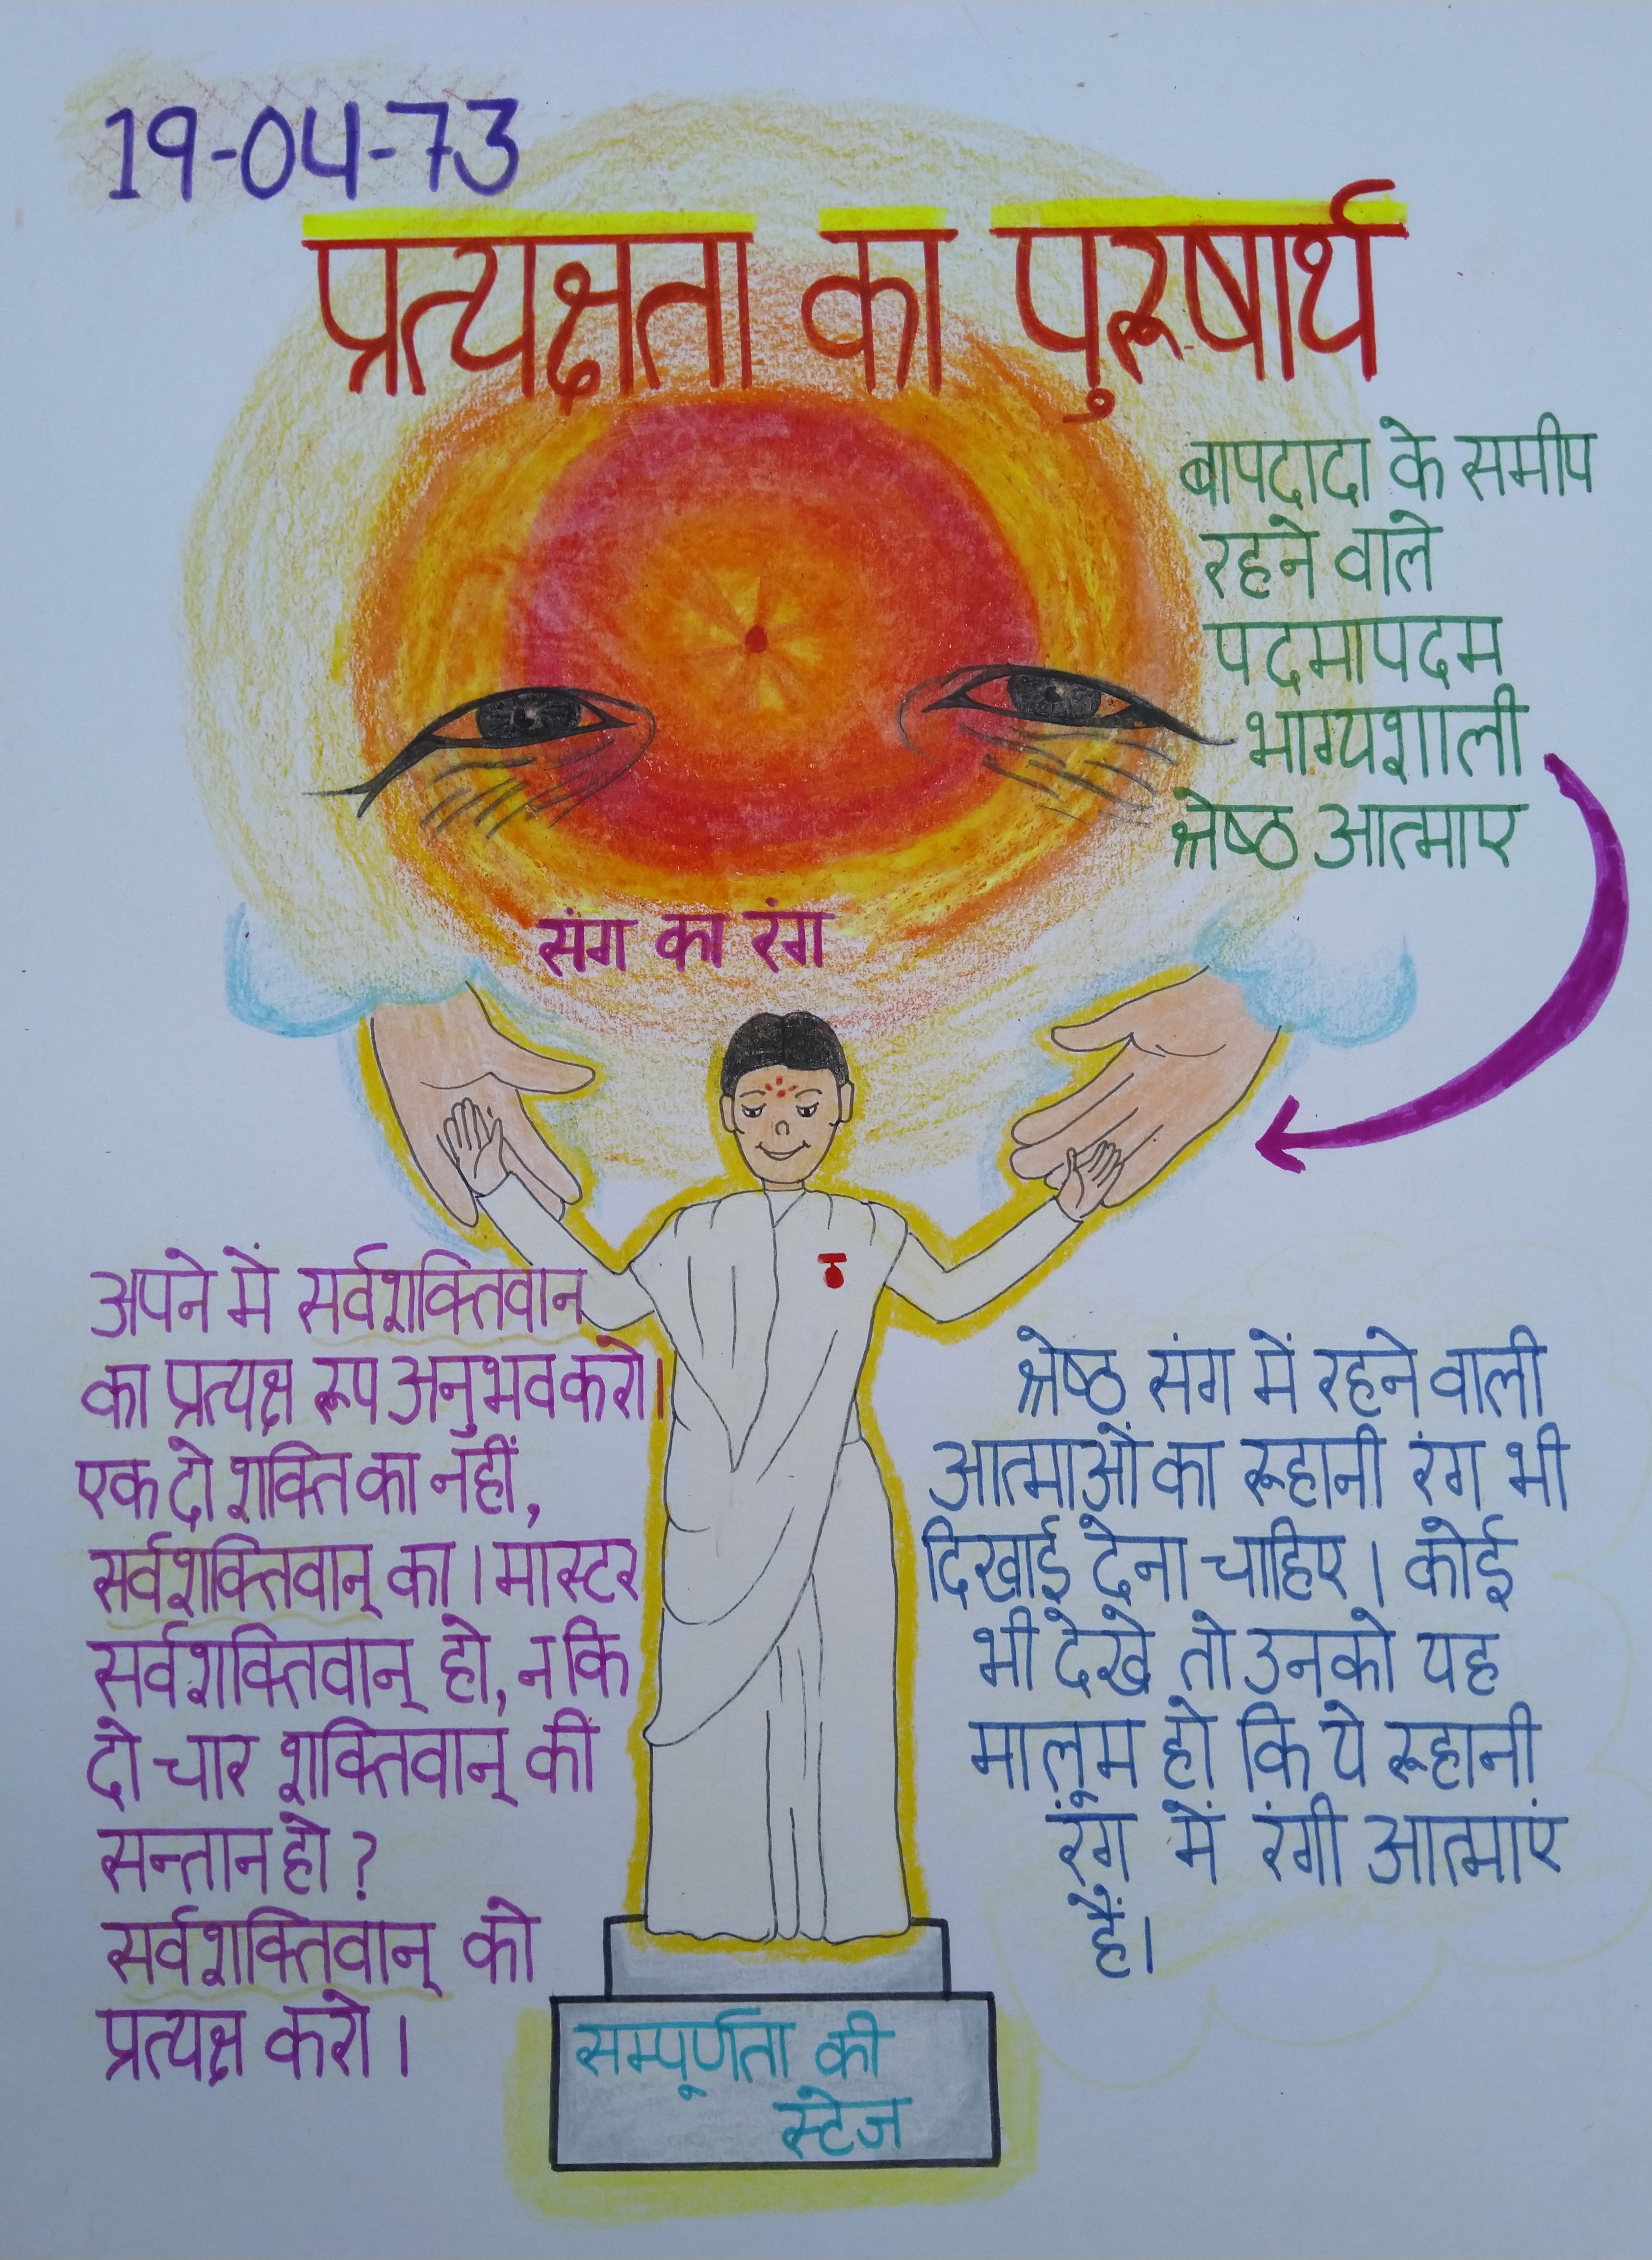 19-04-73
प्रत्यक्षता का पुरूषार्थ
बापदादा के समीप
रहने वाले
पदमापदम
भाग्यशाली
श्रेष्ठ आत्माए
संग का रंग
अपने में सर्वशक्तिवान
का प्रत्यक्ष रूप अनुभव करो।
एक दो शक्ति का नहीं,
सर्वशक्तिवान् का। मास्टर
सर्वशक्तिवान् हो, न कि
दो चार शक्तिवान् की
सन्तान हो?
सर्वशक्तिवान् को
प्रत्यक्ष करो।
श्रेष्ठ संग में रहने वाली
आत्माओं का रूहानी रंग भी
दिखाई देना चाहिए। कोई
भी देखे तो उनको यह
मालूम हो कि ये रूहानी
रंग में रंगी आत्माएं
हैं।
सम्पूर्णता की
स्टेज